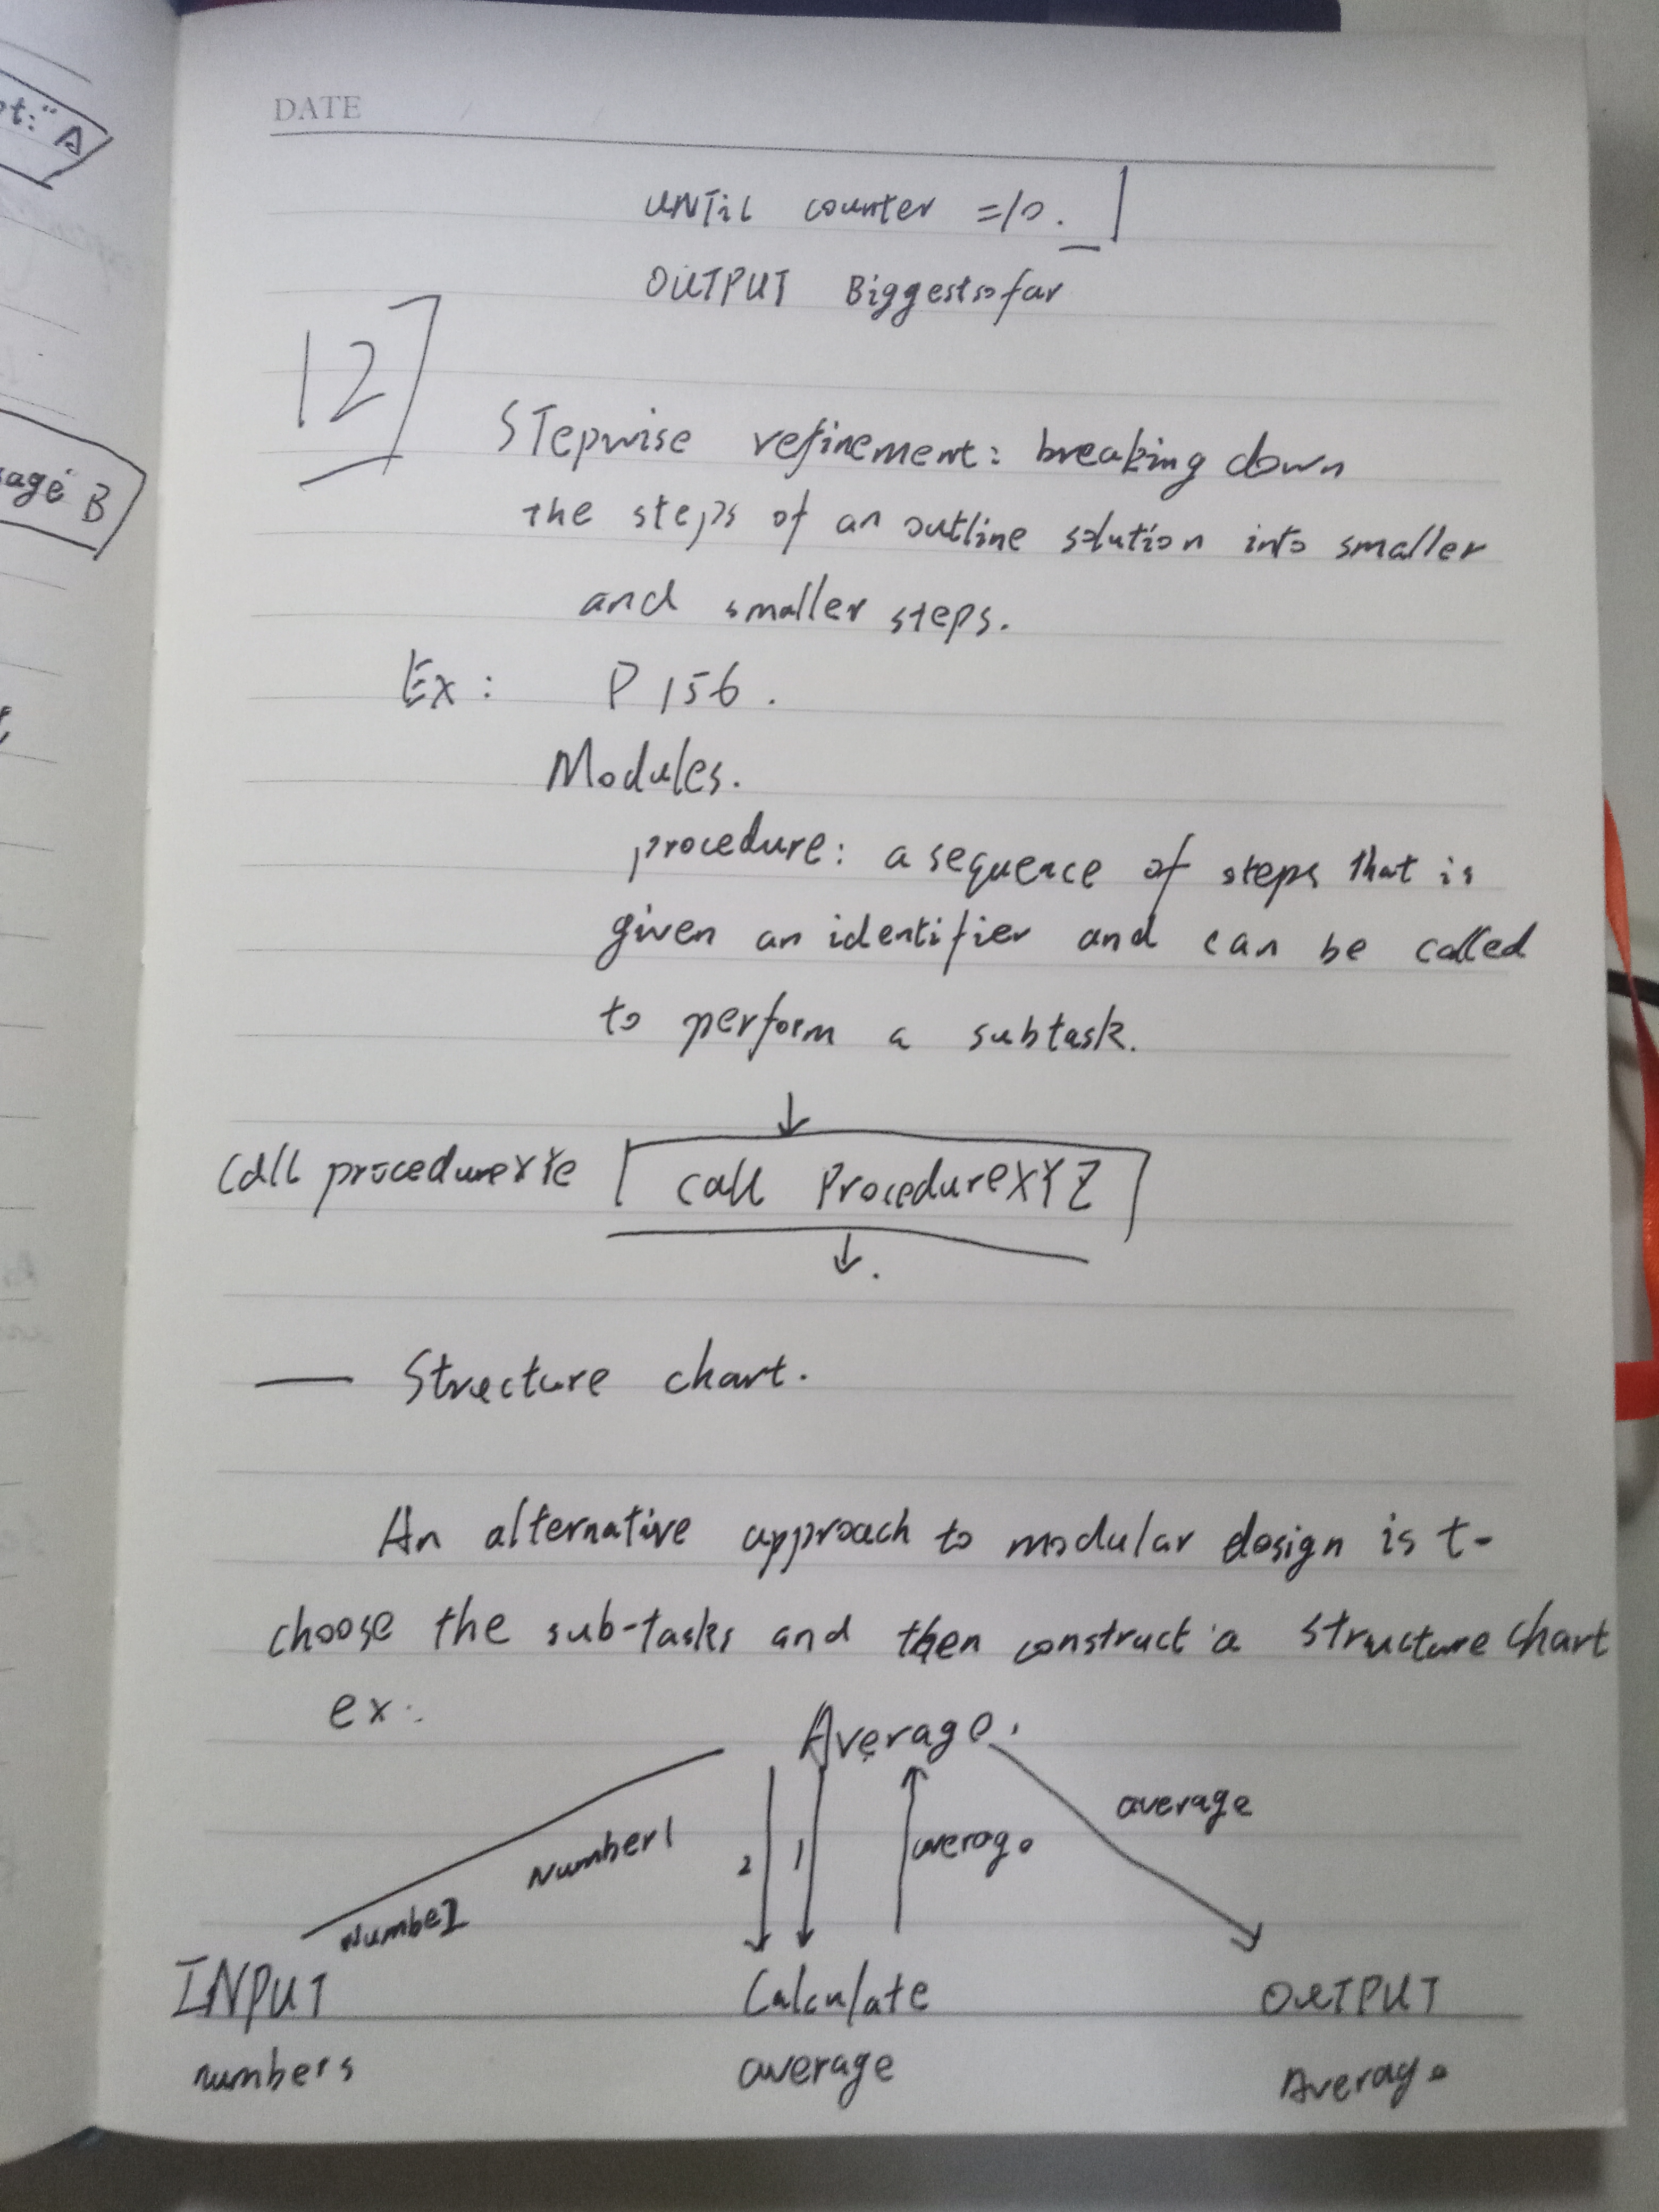 t:" A
sage" B
DATE
UNTIL counter =10.
OUTPUT Biggestsofar
12
STepwise refinement: breaking down
the steps of an outline solution into smaller
and smaller steps.
Ex: P 156.
Modules.
procedure: a sequence of steps that is
given an identifier and can be called
to perform a subtask.
call ProcedureXYZ
Call procedure
— Structure chart.
An alternative approach to modular design is t-
choose the sub-tasks and then construct a structure chart
ex:
Average.
average
Number1
2 1 average
INPUT Calculate OUTPUT
numbers average Average